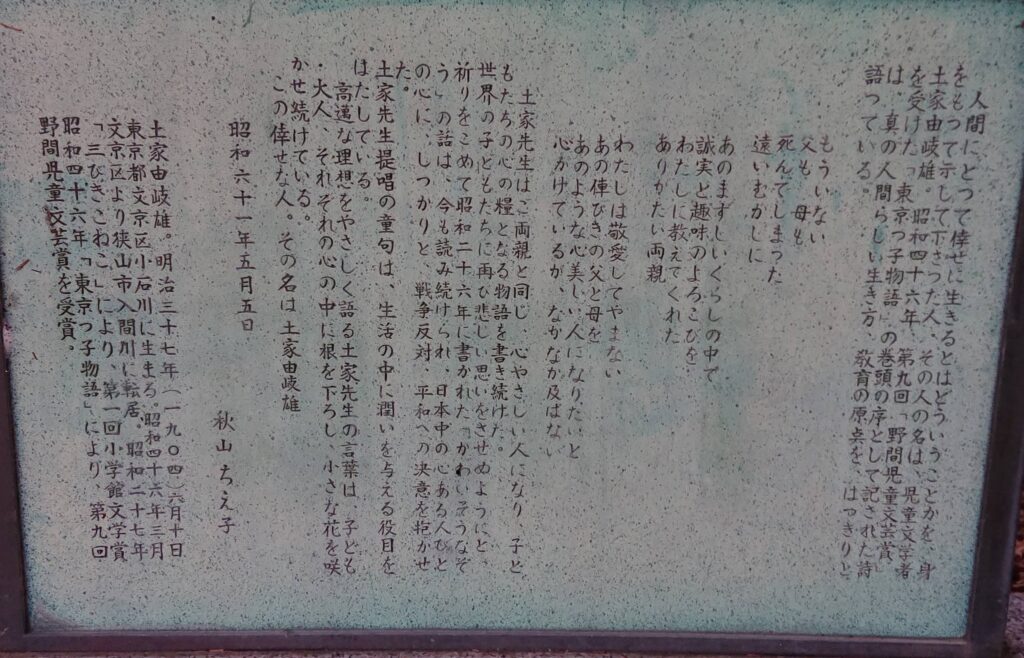 人間にとって倖せに生きるとはどういうことかを、身
をもって示して下さった人、その人の名は、児童文学者
土家由岐雄。昭和四十六年、第九回「野間児童文芸賞」
を受けた「東京っ子物語」の巻頭の序として記された詩
は、真の人間らしい生き方、教育の原点を、はっきりと
語っている。
もういない
父も 母も
死んでしまった
遠いむかしに
あのまずしいくらしの中で
誠実と趣味のよろこびを
わたしに教えてくれた
ありがたい両親
わたしは敬愛してやまない
あの俥ひきの父と母を
あのような心美しい人になりたいと
心がけているが、なかなか及ばない
土家先生はご両親と同じ、心やさしい人になり、子ど
もたちの心の糧となる物語を書き続けた。
世界の子どもたちに再び悲しい思いをさせぬようにと、
祈りをこめて昭和二十六年に書かれた「かわいそうなぞ
う」の話は、今も読み続けられ、日本中の心ある人びと
の心に、しっかりと、戦争反対、平和への決意を抱かせ
た。
土家先生提唱の童句は、生活の中に潤いを与える役目を
はたしている。
高邁な理想をやさしく語る土家先生の言葉は、子ども
・大人、それぞれの心の中に根を下ろし、小さな花を咲
かせ続けている。
この倖せな人。その名は土家由岐雄
昭和六十一年五月五日
秋山ちえ子
土家由岐雄。明治三十七年(一九〇四)六月十日
東京都文京区小石川に生まる。昭和四十六年三月
文京区より狭山市入間川に転居。昭和二十七年
「三びきのこねこ」により、第一回小学館文学賞
昭和四十六年「東京っ子物語」により、第九回
野間児童文芸賞を受賞。